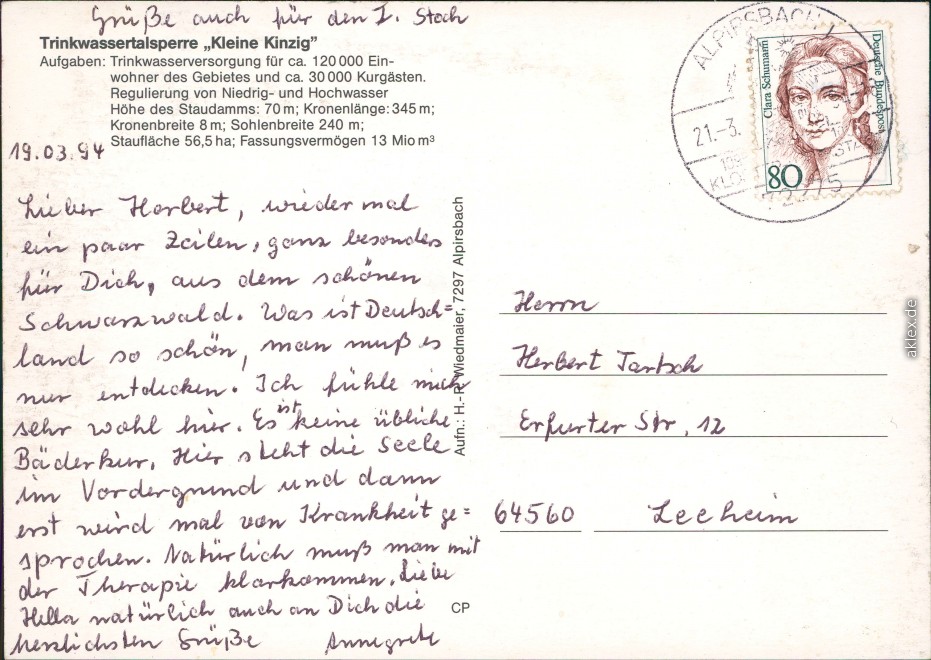 Grüße auch für den I. Stock
Trinkwassertalsperre „Kleine Kinzig"
Aufgaben: Trinkwasserversorgung für ca. 120 000 Ein-
wohner des Gebietes und ca. 30 000 Kurgästen.
Regulierung von Niedrig- und Hochwasser
Höhe des Staudamms: 70 m; Kronenlänge: 345 m;
Kronenbreite 8 m; Sohlenbreite 240 m;
Staufläche 56,5 ha; Fassungsvermögen 13 Mio m³
19.03.94
Lieber Herbert, wieder mal
ein paar Zeilen, ganz besonders
für Dich, aus dem schönen
Schwarzwald. Was ist Deutsch=
land so schön, man muß es
nur entdecken. Ich fühle mich
sehr wohl hier. Es ist keine übliche
Bäderkur. Hier steht die Seele
im Vordergrund und dann
erst wird mal von Krankheit ge=
sprochen. Natürlich muß man mit
der Therapie klarkommen. Liebe
Hella natürlich auch an Dich die
herzlichsten Grüße Annegrete
Aufn.: H.-R. Wiedmaier, 7297 Alpirsbach
CP
ALPIRSBACH 1
21.-3.
72275
Clara Schumann
Deutsche Bundespost
80
Herrn
Herbert Tartsch
Erfurter Str. 12
64560 Leeheim
aklex.de